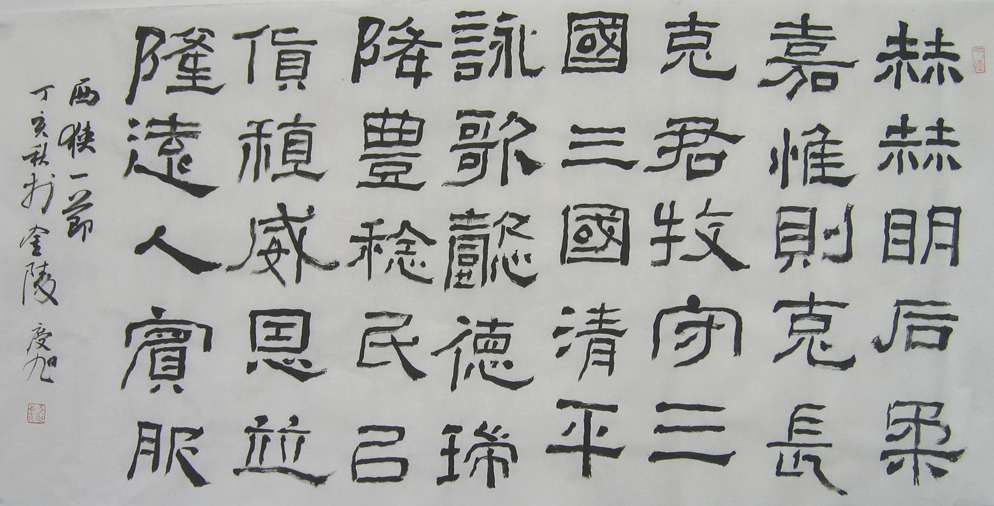 赫赫明后柔
嘉惟則克長
克君牧守三
國三國清平
詠歌懿德瑞
降豊稔民㠯
貨稙威恩並
隆遠人賓服
西狹一節
丁亥秋於金陵 慶旭